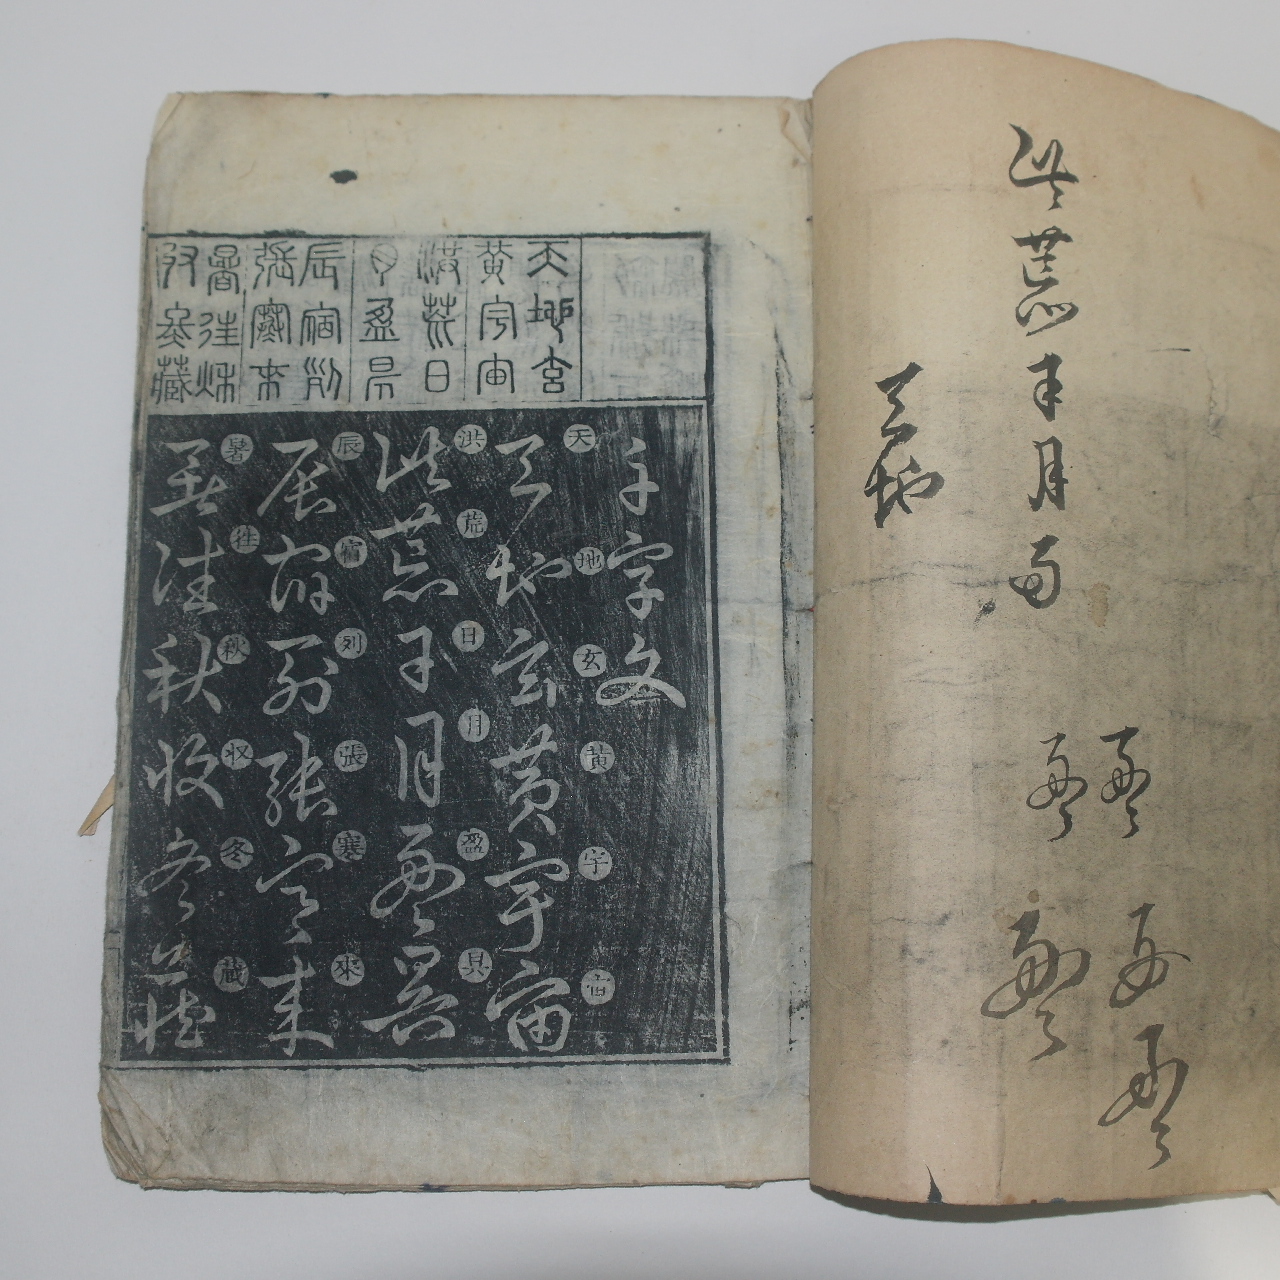 洪荒日月
盈
盈
盈
盈
天地
天地玄
黃宇宙
洪荒日
月盈昃
辰宿列
張寒來
暑往秋
收冬藏
千字文
天地玄黃宇宙
天地玄黃宇宙
洪荒日月盈昃
洪荒日月盈昃
辰宿列張寒來
辰宿列張寒來
暑往秋収冬藏
暑往秋收冬藏